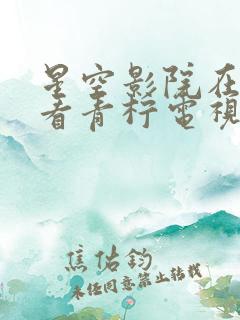 星空影院在
看青柠电视
焦佑钧
未经同意禁止转载